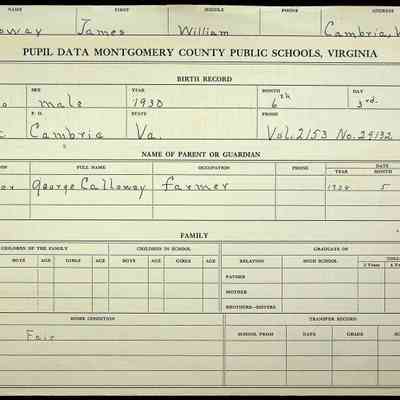 NAME FIRST MIDDLE PHONE ADDRESS
oway James William Cambria, V
PUPIL DATA MONTGOMERY COUNTY PUBLIC SCHOOLS, VIRGINIA
BIRTH RECORD
SEX YEAR MONTH DAY
male 1930 6th 3rd.
P. O. STATE PROOF
Cambria Va. Vol. 2153 No. 29132
NAME OF PARENT OR GUARDIAN
FULL NAME OCCUPATION PHONE DATE
YEAR MONTH
George Calloway farmer 5
FAMILY
CHILDREN OF THE FAMILY CHILDREN IN SCHOOL GRADUATE OF
BOYS AGE GIRLS AGE BOYS AGE GIRLS AGE RELATION HIGH SCHOOL
2 Years
FATHER
MOTHER
BROTHERS—SISTERS
HOME CONDITION TRANSFER RECORD
Fair SCHOOL FROM DATE GRADE